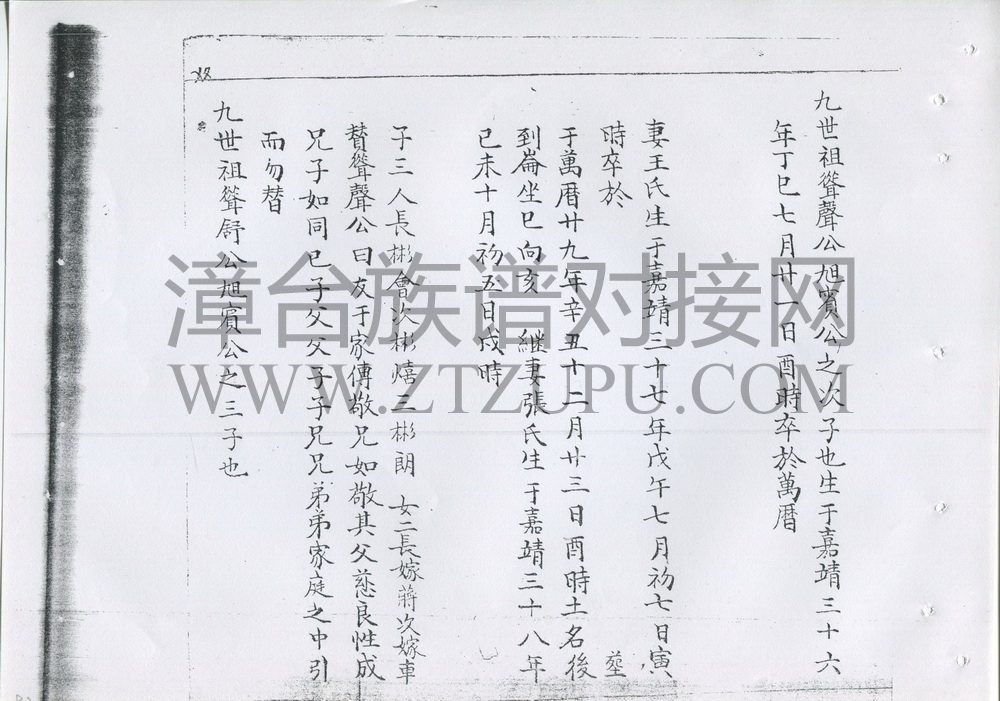 九世祖聳聲公旭賓公之次子也生于嘉靖三十六
年丁巳七月廿一日酉時卒於萬曆
妻王氏生于嘉靖三十七年戊午七月初七日寅
時卒於 塟
于萬曆廿九年辛丑十二月廿三日酉時土名後
到崙坐巳向亥 継妻張氏生于嘉靖三十八年
已未十月初五日戍時
子三人長彬會次彬熺三彬朗 女二長嫁蔣次嫁車
賛聳聲公曰友于家傳敬兄如敬其父慈良性成
兄子如同巳子父父子子兄兄弟弟家庭之中引
而勿替
九世祖聳舒公旭賓公之三子也
漳台族谱对接网
WWW.ZTZUPU.COM